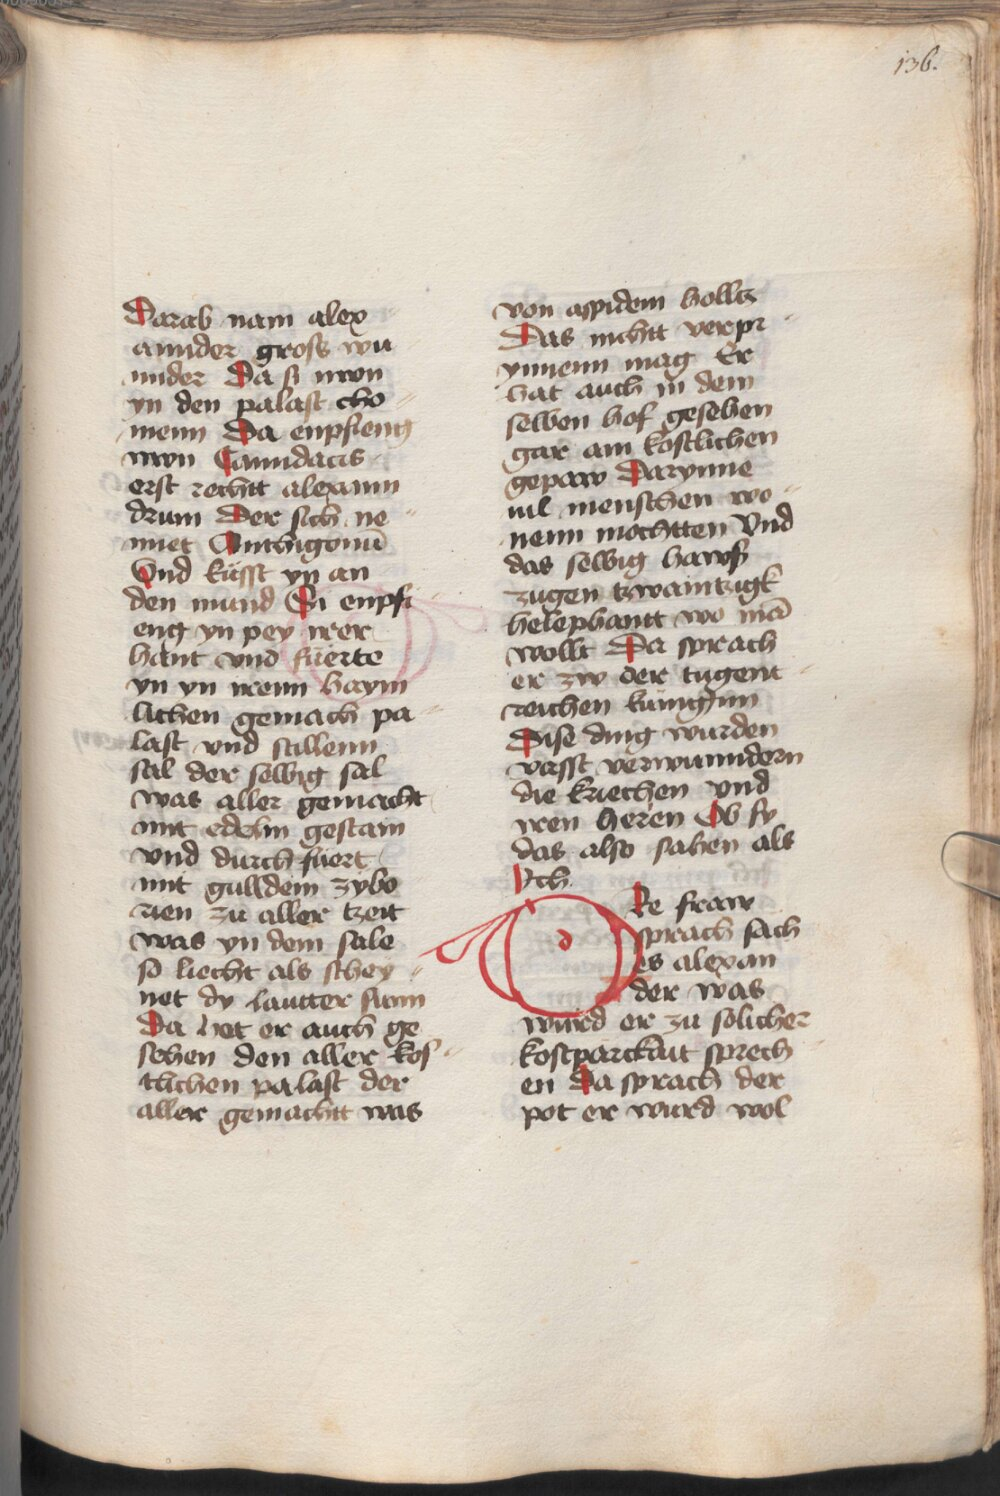 136.
Darab nam alex
annder gross wu
nnder Da si nwn
yn den palast cho
menn Da enpfieng
nwn Canndacis
erst rechtt alexann
drum Der sich ne
nnet Anthigonū
Vnd küsst yn an
den mund Si enpfi
eng yn pey irer
hant vnd fuerte
yn yn irenn haym
lichen gemach pa
last vnd stillenn
sal der selbig sal
was aller gemacht
mit edelm gestain
vnd durch fuert
mit gulldem zybo
rien zu aller tzeit
was yn dem sale
so liecht als schey
net dy lautter sunn
Da het er auch ge
sehen den aller kos
tlichen palast der
aller gemachtt was
von aspidem hollcz
Das nichtt verpr
ynnenn mag Er
hat auch in dem
selben hof gesehen
gar am kostlichen
gepaw Darynne
vil menschen wo
nenn mochtten Vnd
das selbig hawss
zugen tzwaintzigk
helephantt wo mā
wollt Da sprach
er zw der tugent
reichen künigynn
Dise ding wurden
vasst verwunndern
die kriechen vnd
iren heren Ob sy
das also sahen als
Ich
Die fraw
sprach sach
es alexan
der was
wurd er zu solicher
kostparckait sprech
en Da sprach der
pot er wurd wol